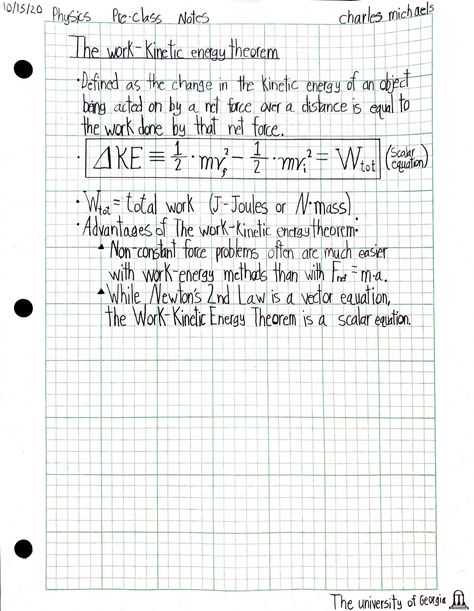 10/15/20 Physics Pre-class Notes charles michaels
The work-Kinetic energy theorem
·Defined as the change in the kinetic energy of an object
being acted on by a net force over a distance is equal to
the work done by that net force.
· ΔKE ≡ 1/2 · mv_f² - 1/2 · mv_i² = W_tot (Scalar equation)
· W_tot = total work (J-Joules or N·mass)
· Advantages of The work-Kinetic energy theorem:
▲ Non-constant force problems often are much easier
with work-energy methods than with F_net = m·a.
▲ While Newton's 2nd Law is a vector equation,
the Work-Kinetic Energy Theorem is a scalar equation.
The university of Georgia